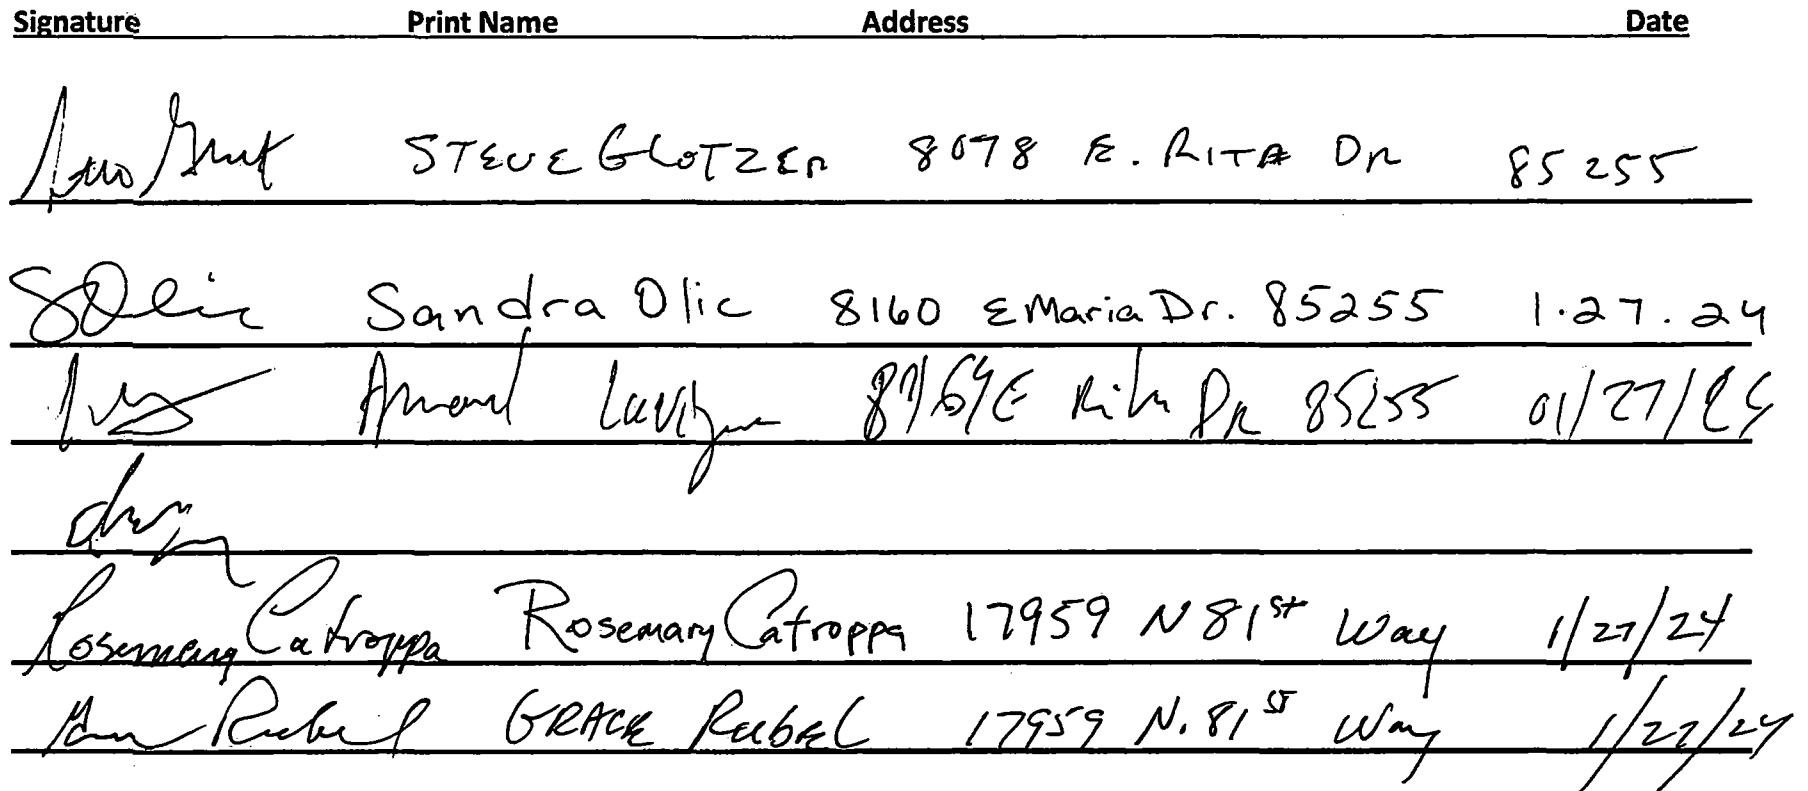 Signature Print Name Address Date
STEVE GLOTZER 8078 E. RITA DR 85255
SOlic Sandra Olic 8160 E Maria Dr. 85255 1.27.24
Armand LaVigne E Rita DR 85255 01/27/24
Rosemary Catroppa Rosemary Catroppa 17959 N 81st Way 1/27/24
Rubel GRACE RubEL 17959 N. 81ST Way 1/27/24